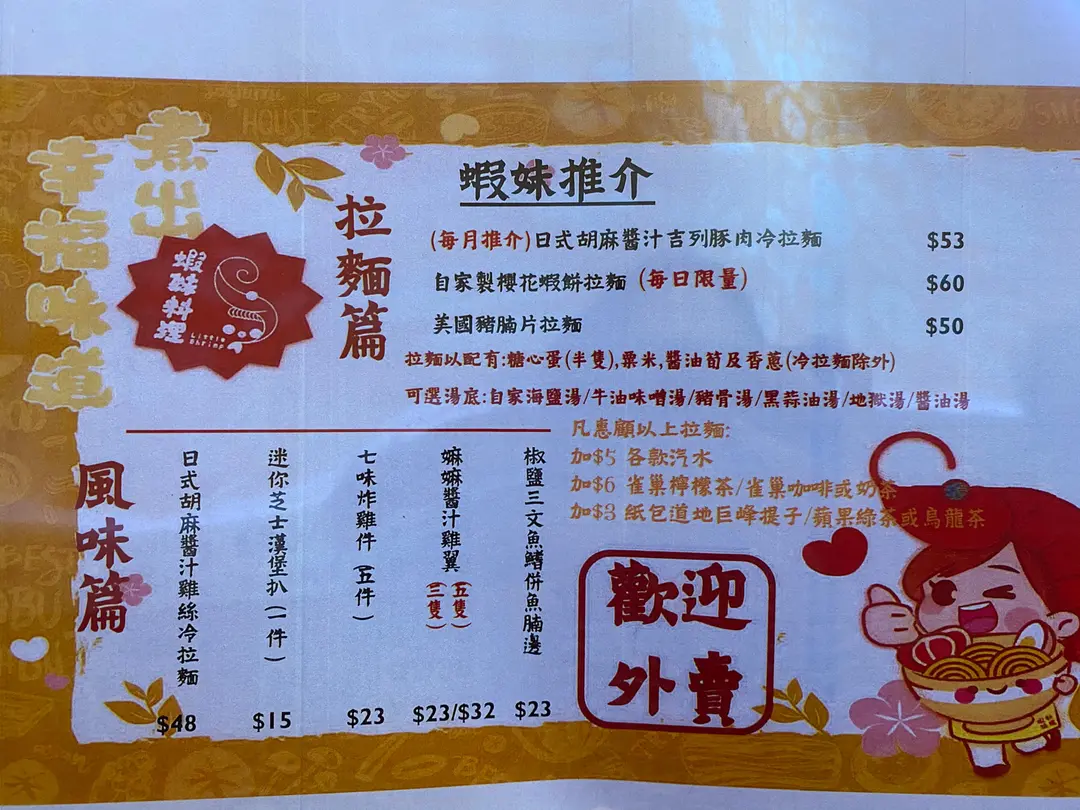 煮出
幸福味道
蝦酥料理
Little
Shrimp
拉麵篇
蝦妹推介
(每月推介)日式胡麻醬汁吉列豚肉冷拉麵 $53
自家製櫻花蝦餅拉麵 (每日限量) $60
美國豬腩片拉麵 $50
拉麵以配有:糖心蛋(半隻),粟米,醬油筍及香蔥(冷拉麵除外)
可選湯底:自家海鹽湯/牛油味噌湯/豬骨湯/黑蒜油湯/地獄湯/醬油湯
凡惠顧以上拉麵:
加$5 各款汽水
加$6 雀巢檸檬茶/雀巢咖啡或奶茶
加$3 紙包道地巨峰提子/蘋果綠茶或烏龍茶
風味篇
日式胡麻醬汁雞絲冷拉麵 $48
迷你芝士漢堡扒(一件) $15
七味炸雞件(五件) $23
嫲嫲醬汁雞翼 (三隻)(五隻) $23/$32
椒鹽三文魚鰭併魚腩邊 $23
歡迎
外賣
HOUSE